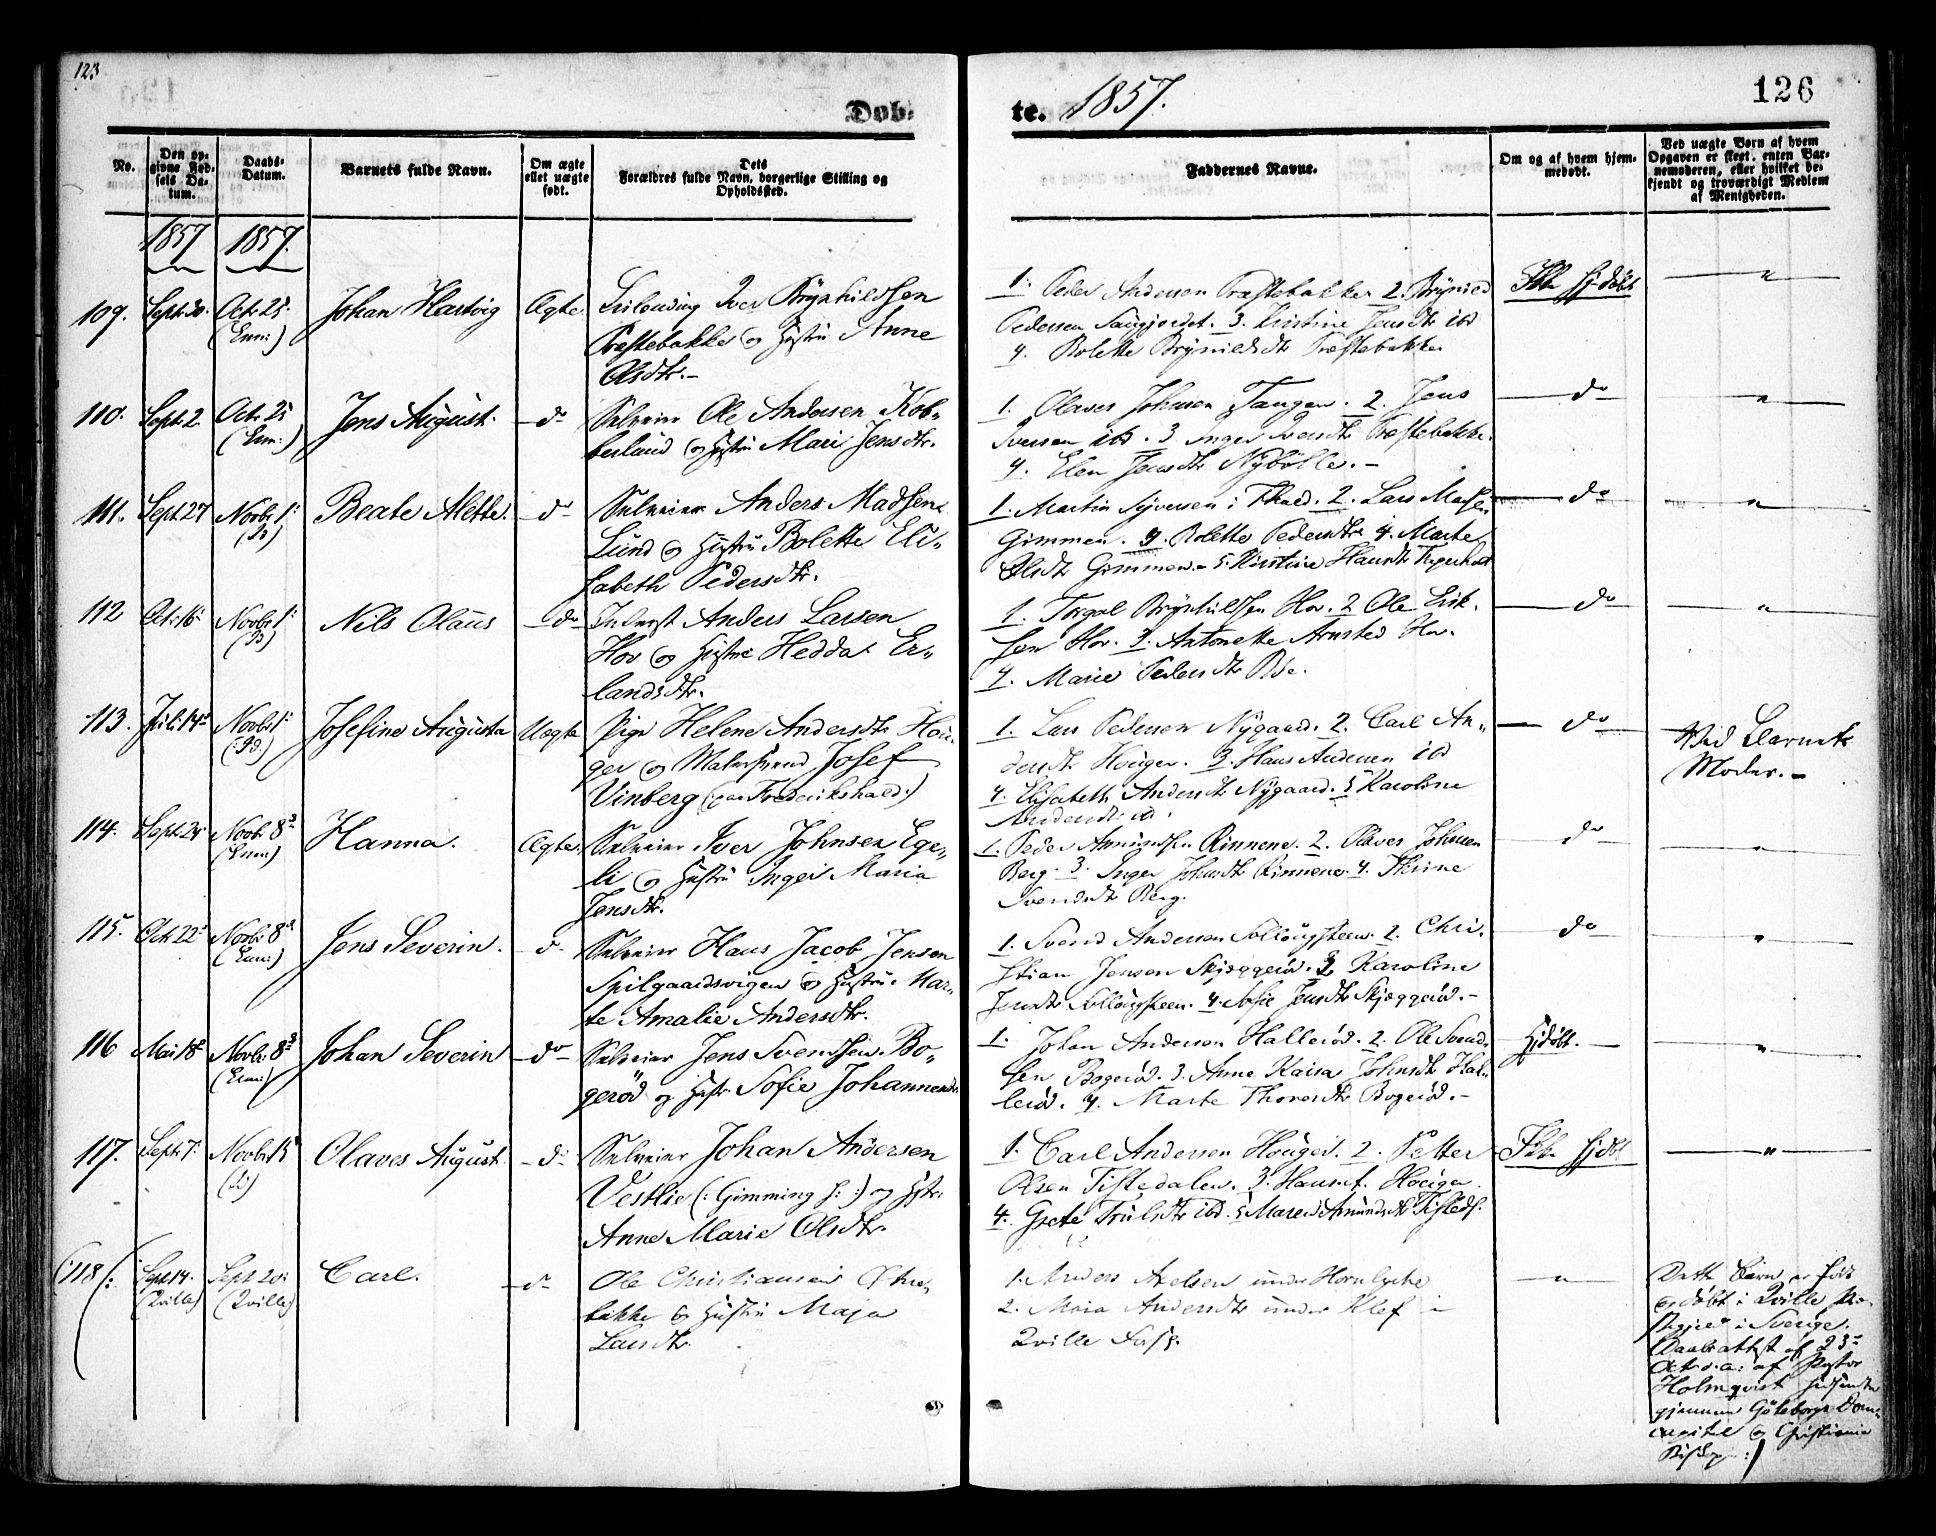 123
Døb-
te. 1857.
126
No.
Den op-
givne Fød-
sels Da-
tum.
Daabs-
Datum.
Barnets fulde Navn.
Om ægte
ellet uægte
født.
Dets
Forældres fulde Navn, borgerlige Stilling og
Opholdssted.
Faddernes Navne.
Om og af hvem hjem-
medøbt.
Ved uægte Børn af hvem
Opgaven er skeet, enten Bar-
nemoderen, eller hvilket be-
kjendt og troværdigt Medlem
af Menigheden.
1857 1857.
109. Sept: 20. Octr 25. (Enn:) Johan Hartvig Ægte
Iver Brynhildsen
Præstebakke og Hustru Anne
Olsdtr.-
1. Peder Andersen Præstebakke 2. Brynild
Pedersen 3. Kristine Jensdtr ibd
4. Bolette Brynildsdtr Præstebakke
Ikke Hjdøbt "
110. Sept 2 Octr 25 (Enn:) Jens August. do
Selveier Ole Andersen Kob-
berlund og Hustru Mari Jensdtr.
1. Olaves Johnsen Tangen. 2. Jens
Iversen ibd. 3 Inger Iversdtr Præstebakke.
4. Elen Jensdtr Nybølle.-
do "
111. Sept 27 Novbr 1: (Id) Beate Alette. do
Selveier Anders Madsen
Lund og Hustru Bolette Eli-
sabeth Pedersdtr.
1. Martin Syversen i Fhald. 2. Lars Madsen
Gimmen. 3. Bolette Pedersdtr 4. Marte
Olsdtr Gimmen.- 5. Kirstine Hansdtr
do "
112 Oct: 16 Novbr 1: (Id) Nils Olaus do
Inderst Anders Larsen
Hov og Hustru Hedda Er-
landsdtr.
1. Torgal Brynhildsen Hov. 2 Ole Erik-
sen Hov. 3. Antonette Arnsted Hov.
4. Marie Pedersdtr
do "
113. Juli 14 Novbr 1: (:Id) Josefine Augusta Uægte
Pige Helene Andersdtr Hou-
ger og Malersvend Josef
Vinberg (paa Frederikshald:)
1. Lars Pedersen Nygaard. 2. Carl An-
Houger. 3. Hans Andersen ibd
4. Elisabeth Andersdtr Nygaard. 5 Karoline
Andersdtr ibd.
do Ved Barnets
Moder.-
114. Sept: 25 Novb: 8 (Enn:) Hanna. Ægte.
Selveier Iver Johnsen Ege-
li og Hustru Inger Maria
Jensdtr.
1. Peder Amundsen Rinnene. 2. Olaves Johnsen
Berg. 3. Inger Johnsdtr Rinnene. 4. Thrine
Svendsdtr Berg.
do "
115. Oct: 22 Novbr 8 (Enn:) Jens Severin. do
Selveier Hans Jacob Jensen
Spilgaardsvigen og Hustru Mar-
te Amalie Andersdtr.
1. Svend Andersen 2. Chri-
stian Jensen Skjæggerød. 3 Karoline
Jensdtr 4. Sofie Jensdtr Skjæggerød.-
do "
116 Mai 18 Novbr: 8 (Enn:) Johan Severin do
Selveier Jens Svendsen Bo-
gerød og Hustr Sofie Johannesdr
1. Johan Andersen Hallerød. 2. Ole Svend-
sen Bogerød. 3. Anne Kaisa Johnsdtr Hal-
lerød. 4. Marte Thoresdtr Bogerød.-
Hjdøbt. "
117. Sept 7: Novbr 15 (Id) Olaves August do
Selveier Johan Andersen
Vestlie (: Gimming s: :) og Hstr:
Anne Marie Olsdtr.
1. Carl Andersen Houger. 2. Petter
Olsen Tistedalen. 3. Hans f. Houger.
4. Grete Trulsdtr ibd. 5 Maren Amundsdtr Tisteds.
Ikke Hjdøbt "
(:118/: Sept 14. (Qville) Sept 20: (Qville) Carl. do
Ole Christiansen
bakke og Hustru Maja
Larsdtr.
1. Anders Axelsen under Hornlycke
2. Maja Andersdtr under Klef i
Qville
"
Dette Barn er født
og døbt i Qville Præ-
stegjeld i Sverige.
Daabsattest af 23
Octr d.a. af Pastor
Holmqvist
gjennem Göteborgs Dom-
capitel og Christiania
Biskop :/